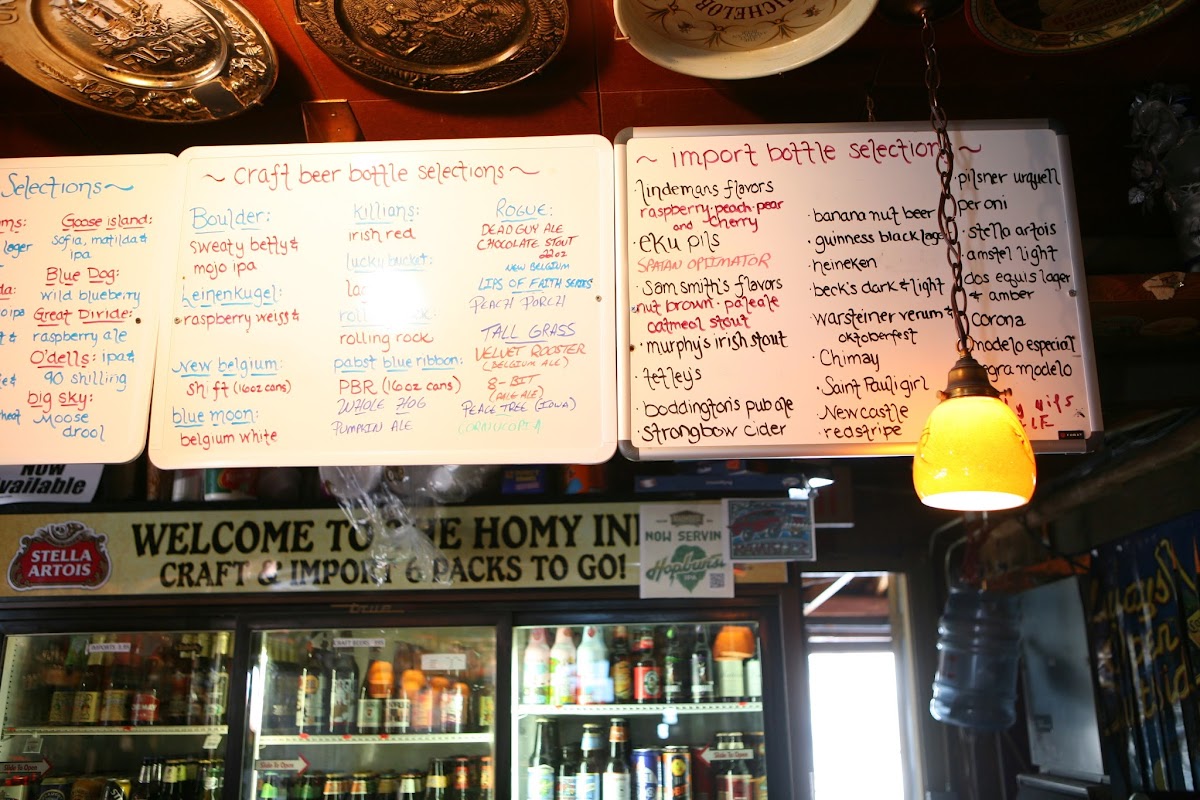 MICHELOB
Selections~
ms:
lager
Goose island:
sofia, matilda &
ipa
Blue Dog:
wild blueberry
Great Divide:
raspberry ale
O'dells: ipa &
90 shilling
big sky:
Moose
drool
~ craft beer bottle selections ~
Boulder:
sweaty betty &
mojo ipa
Leinenkugel:
raspberry weiss &
New belgium:
shift (16oz cans)
blue moon:
belgium white
killians:
irish red
lucky bucket:
rolling rock
pabst blue ribbon:
PBR (16oz cans)
WHOLE HOG
PUMPKIN ALE
ROGUE:
DEAD GUY ALE
CHOCOLATE STOUT
22oz
NEW BELGIUM
LIPS OF FAITH SERIES
PEACH PORCH
TALL GRASS
VELVET ROOSTER
(BELGIUM ALE)
8-BIT
(PALE ALE)
PEACE TREE (IOWA)
CORNUCOPIA
~ import bottle selection
lindemans flavors
raspberry·peach·pear
and cherry
eku pils
SPATAN OPTIMATOR
·samsmith's flavors
nut brown·pale ale
oatmeal stout
·murphy's irish stout
·tetley's
·boddington's pub ale
·strongbow cider
·banana nut beer
·guinness black lager
·heineken
·beck's dark & light
·warsteiner verum &
oktoberfest
·Chimay
·Saint Pauli girl
·Newcastle
·redstripe
·pilsner urquell
peroni
·stella artois
·amstel light
dos equis lager
& amber
corona
modelo especial
negra modelo
NOW
Available
STELLA
ARTOIS
WELCOME TO THE HOMY INN
CRAFT & IMPORT 6 PACKS TO GO!
NOW SERVIN
Hopburst
IPA
true
Slide To Open
Slide To Open
Slide To Open